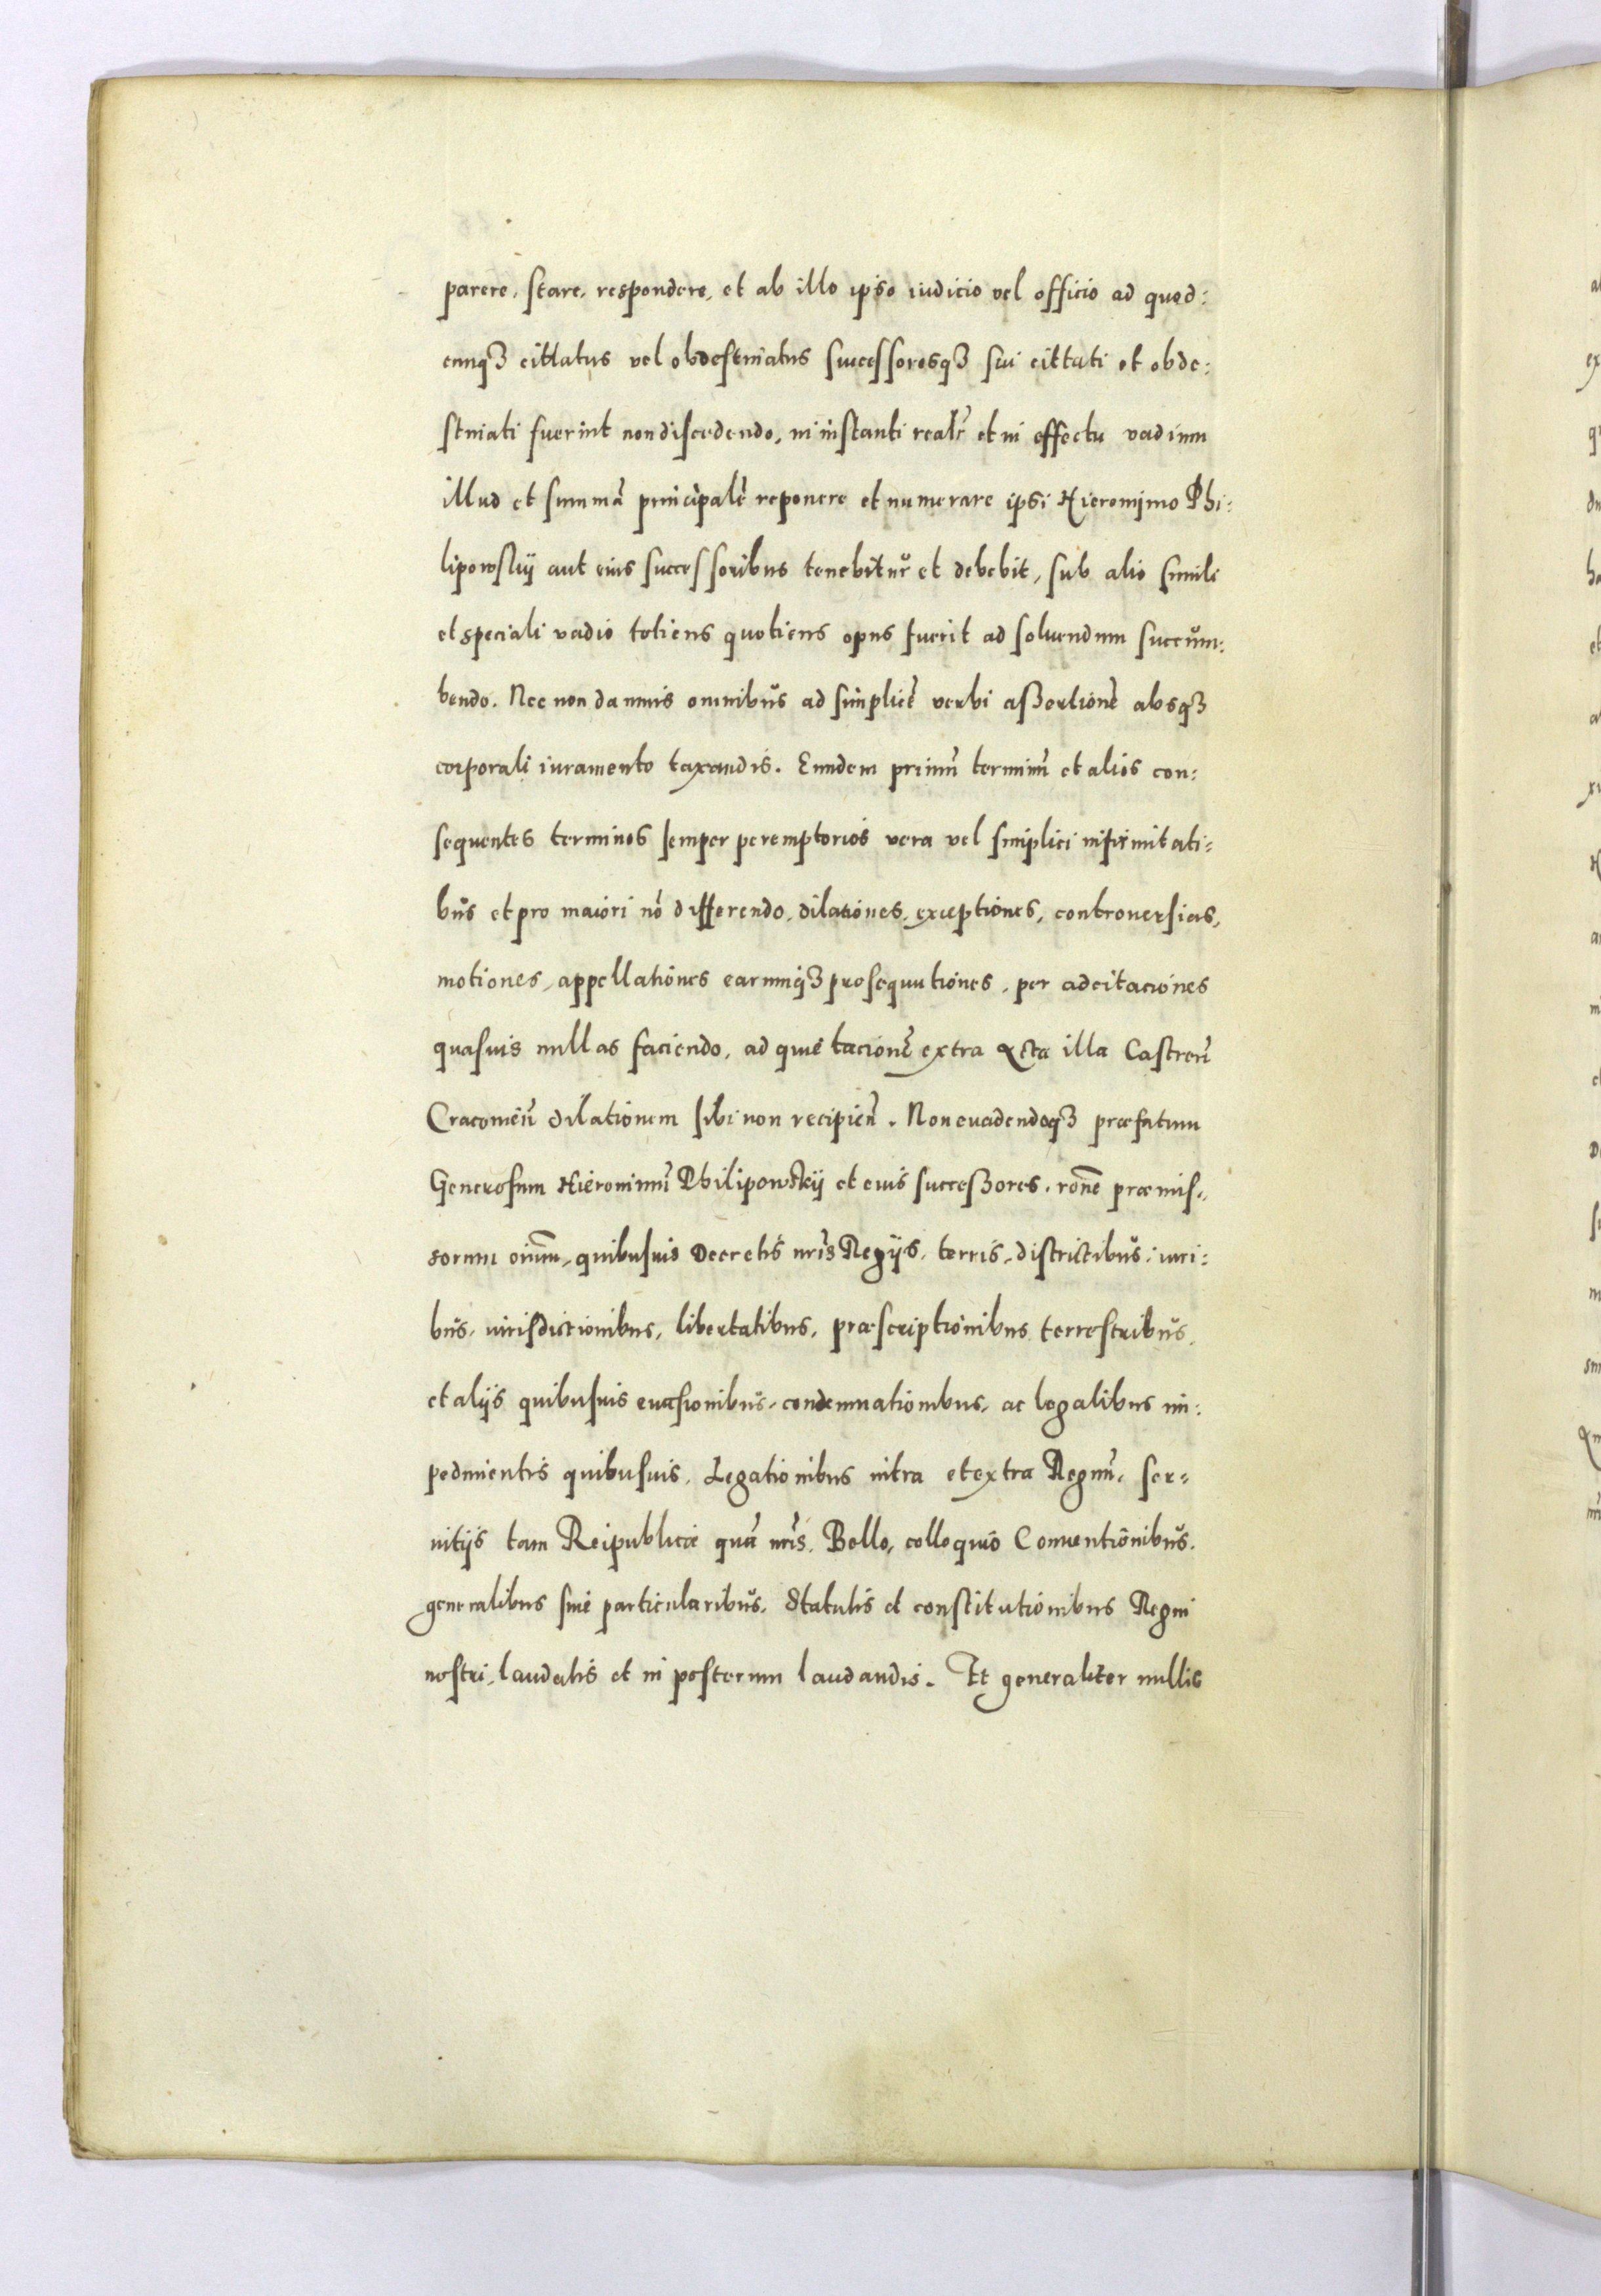 parere, stare, respondere, et ab illo ipso iudicio vel officio ad quod:
cunqꝫ cittatus vel obdestinatus successoresqꝫ sui cittati et obde:
stinati fuerint non discedendo, in instanti realr̃ et in effectu vadium
illud et summã principalẽ reponere et numerare ipsi Hieronimo Phi:
lipowskij aut eius successoribus tenebitur et debebit, sub alio simili
et speciali vadio totiens quotiens opus fuerit ad soluendum succum:
bendo. Nec non damnis omnibus ad simplicẽ verbi aßertionẽ absqꝫ
corporali iuramento taxandis. Eundem primũ terminũ et alios con:
sequentes terminos semper peremptorios vera vel simplici infirmitati:
bus et pro maiori nõ differendo, dilationes, exceptiones, controuersias,
motiones, appellationes earumqꝫ prosequutiones, per adcitaciones
quasuis nullas faciendo, ad quietacionẽ extra acta illa Castreñ
Cracouieñ dilationem sibi non recipieñ. Non euadendoqꝫ præfatum
Generosum Hieronimũ Philipowskij et eius succeßores, rõne præmis:
sorum oium̃, quibusuis Decretis nr̃is Regijs, terris, districtibus, iuri:
bus, iurisdictionibus, libertatibus, præscriptionibus terrestribus,
et alijs quibusuis euasionibus, condemnationibus, ac legalibus im:
pedimentis quibusuis, Legationibus intra et extra Regnũ, ser:
uitijs tam Reipublicæ quã nr̃is, Bello, colloquio Conuentionibus,
generalibus siue particularibus, Statutis et constitutionibus Regni
nostri, laudatis et in posterum laudandis. Et generaliter nullis